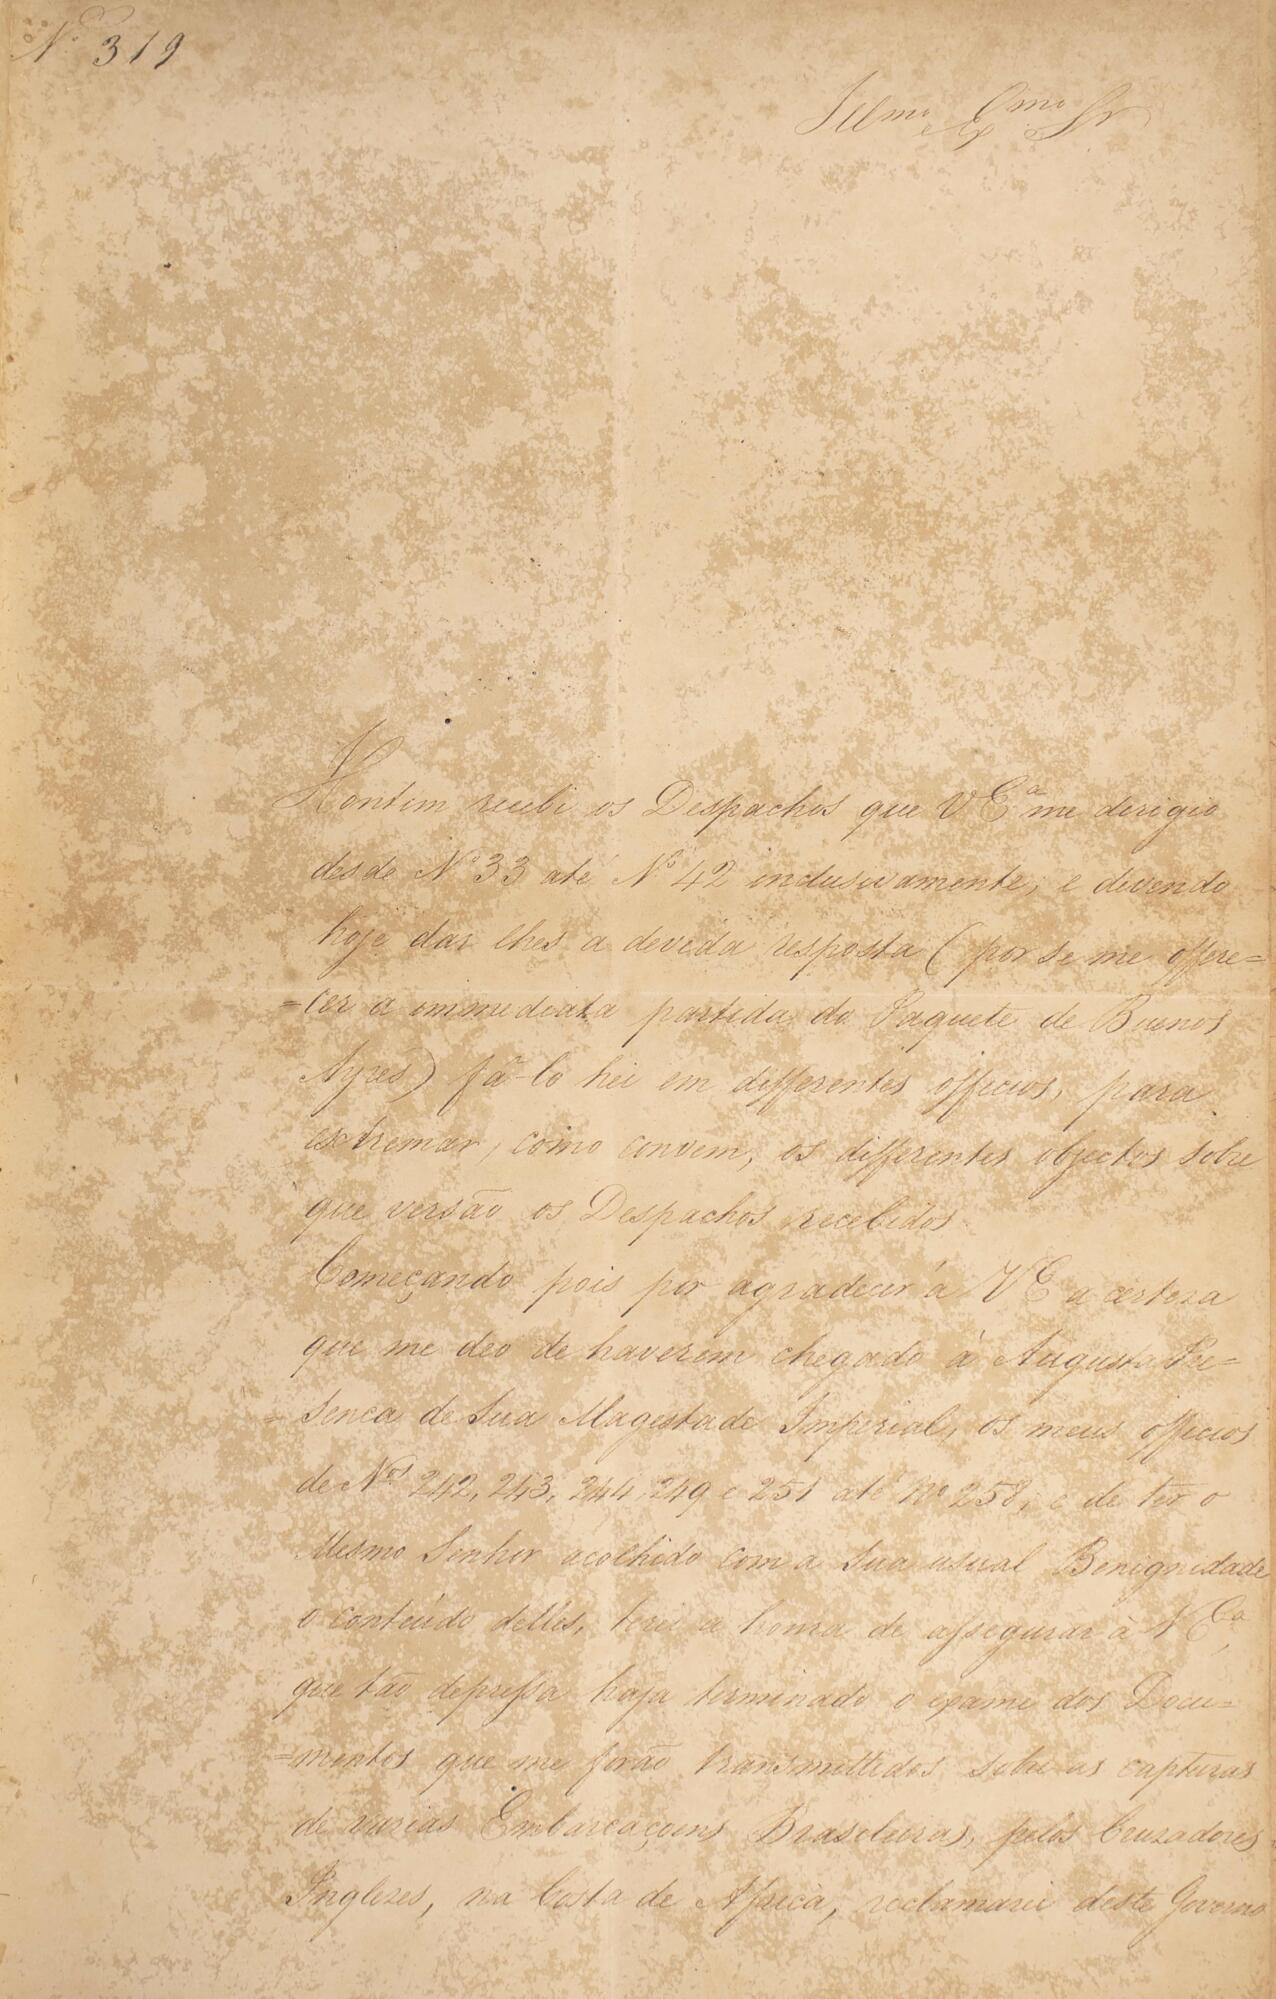 Nº 319
Illmo Exmo Sr
Hontem recebi os Despachos que V Eª me dirigio
desde Nº 33 até Nº 42 inclusivamente, e devendo
hoje dar lhes a devida resposta (por se me offere=
=cer a immediata partida do Paquete de Buenos
Ayres) fá-lo hei em differentes officios, para
extremar, como convem, os differentes objectos sobre
que versão os Despachos recebidos
Começando pois por agradecer á V E a certeza
que me deo de haverem chegado á Augusta Pre=
=senca de Sua Magestade Imperial, os meus officios
de Nos 242, 243, 244, 249 e 251 até Nº 258, e de ter o
Mesmo Senhor acolhido com a Sua usual Benignidade
o conteúdo delles, terei a honra de assegurar à V Eª,
que tão depressa haja terminado o exame dos Docu=
=mentos que me forão transmittidos sobre as capturas
de varias Embarcaçoens Brasileiras, pelos Cruzadores
Inglezes, na Costa de Africa, reclamarei deste Governo